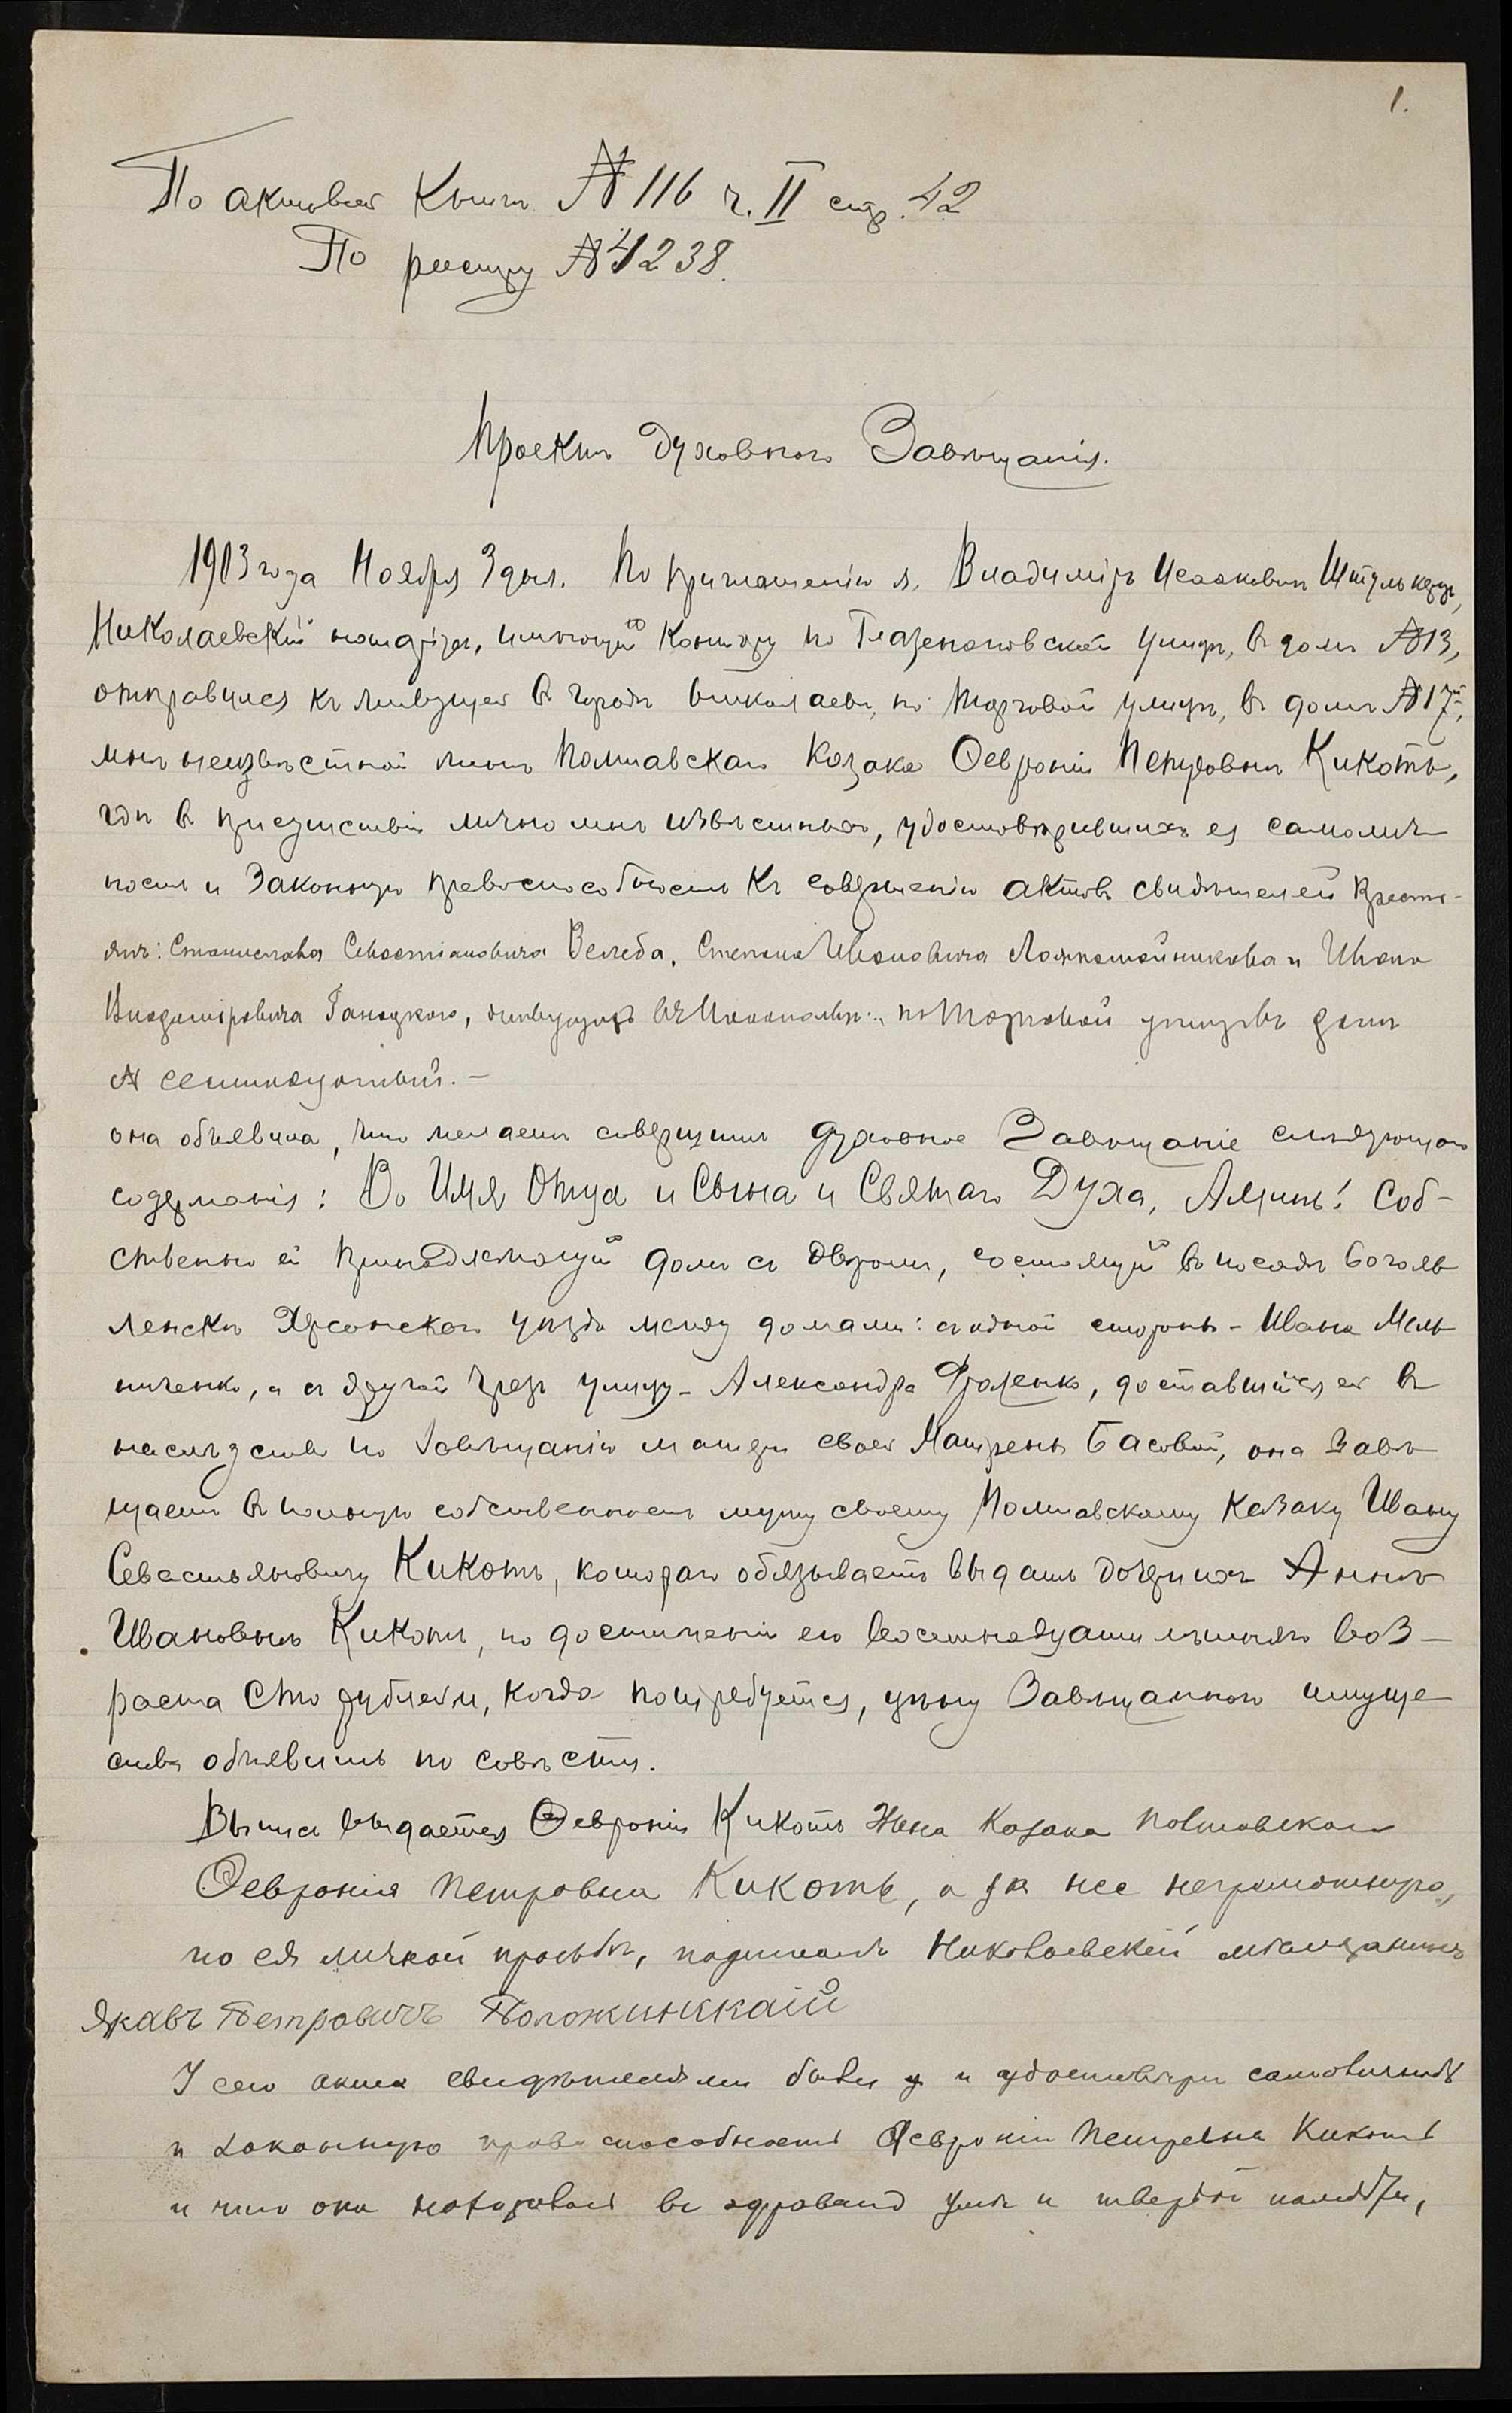 1.
По актовой Книгѣ № 116 ч. II стр. 42
По реестру № 4238.
Проектъ Духовнаго Завѣщанія.
1903 года Ноября 3 дня. По приглашенію я, Владиміръ Исааковичъ
Николаевскій нотаріусъ, имѣющій Контору по Глазенаповской улицѣ, въ домѣ № 13,
отправился къ живущей въ городѣ Николаевѣ, по Торговой улицѣ, въ домѣ № 17й,
мнѣ неизвѣстной женѣ Полтавскаго Козака Февроніи Петровнѣ Кикоть,
гдѣ въ присутствіи лично мнѣ извѣстныхъ, удостовѣрившихъ ея самолич-
ность и Законную правоспособность къ совершенію актовъ свидѣтелей Кресть-
янъ: Станислава Севастіановича Велеба, Степана Ивановича и Ивана
Владиміровича Ганацкаго, живущихъ въ Николаевѣ, по Торговой улицѣ въ домѣ
№ семнадцатый. —
она объявила, что желаетъ совершить духовное Завѣщаніе слѣдующаго
содержанія: Во Имя Отца и Сына и Святаго Духа, Аминь! Соб-
ственно ей принадлежащій домъ съ дворомъ, состоящій въ посадѣ Богояв-
ленскѣ Херсонскаго уѣзда между домами: съ одной стороны - Ивана Мель-
ниченко, а съ другой чрезъ улицу - Александра Фроленко, доставшійся ей въ
наслѣдство по Завѣщанію матери своей Матрены Басовой, она Завѣ-
щаетъ въ полную собственность мужу своему Полтавскому Казаку Ивану
Севастьяновичу Кикоть, котораго обязываетъ выдать дочери ихъ Аннѣ
Ивановнѣ Кикоть, по достиженіи ею восемнадцати лѣтняго воз-
раста Сто рублей и, когда потребуется, цѣну Завѣщаннаго имуще-
ства объявить по совѣсти.
Выпись выдается Февроніи Кикоть Жена Козака Полтавскаго
Феврония Петровна Кикоть, а за нее неграмотную,
по ея личной просьбѣ, подписалъ Николаевский мѣщанинъ
Яковъ Петровичъ Положинккаій
У сего акта свидѣтелями были и удостовѣри самоличность
и законную право способность Февроніи Петровна Кикоть
и что она находилась въ здравомъ умѣ и твердой памяти,